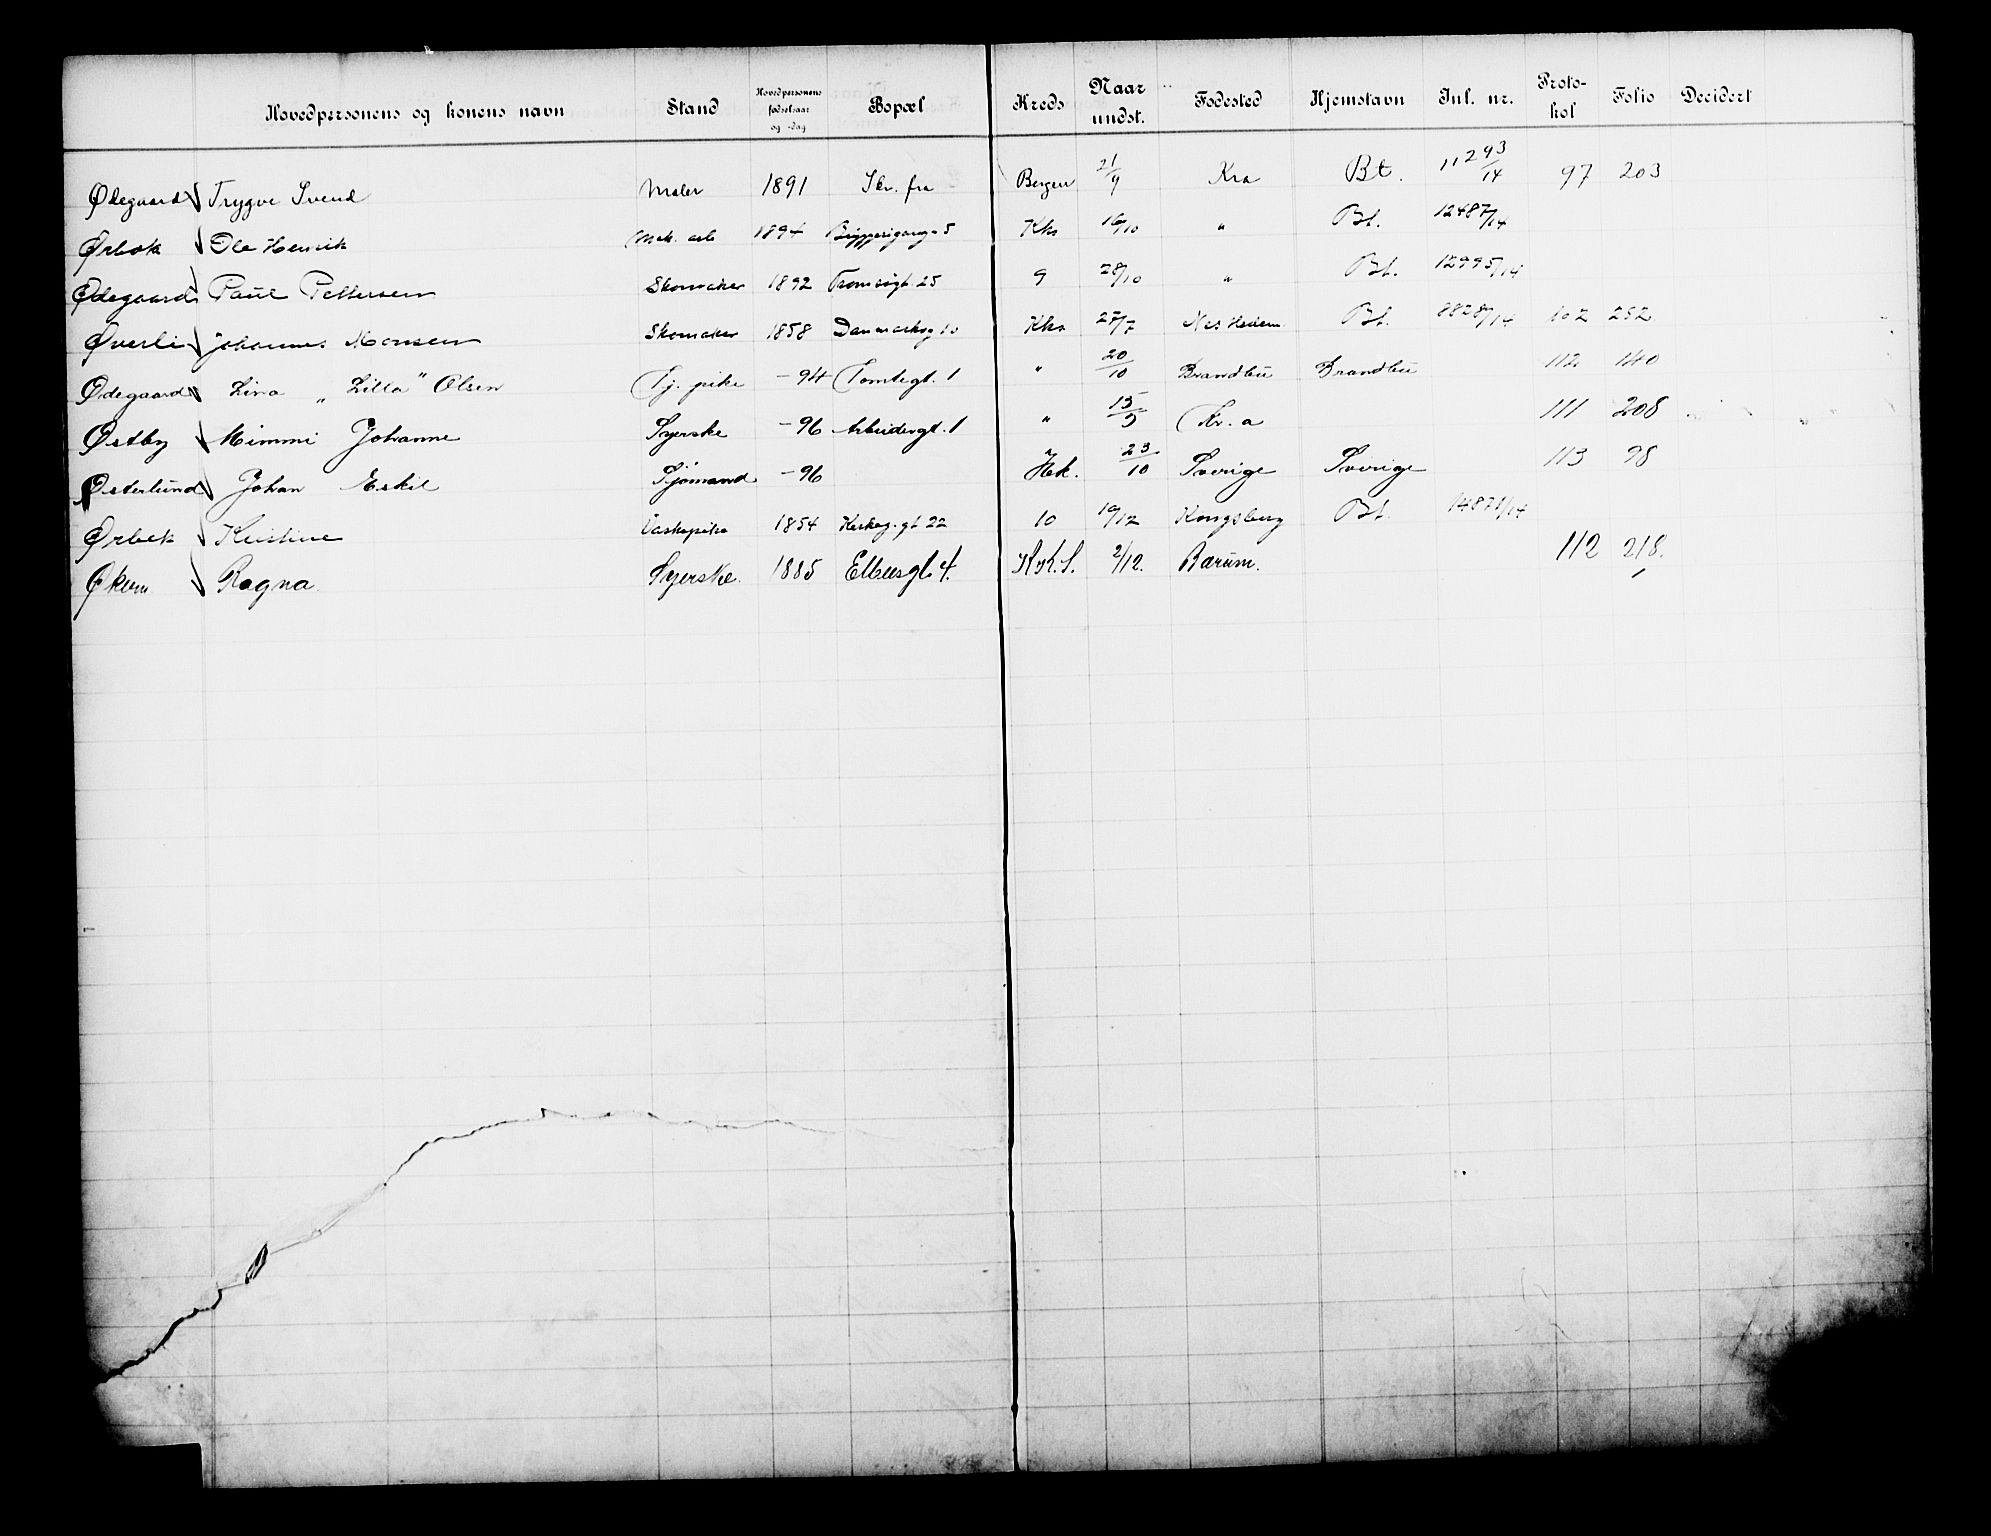 Hovedpersonens og konens navn Stand Hovedpersonens fødselsaar og -dag Bopæl Kreds Naar undst. Fødested Hjemstavn Inl. nr. Protokol Folio Decidert
Ødegaard Trygve Svend Maler 1891 Skr. fra Bergen 21/9 Kra Bt. 11293/14 97 203
Ørbæk Ole Henrik Mek. arb 1894 Kks 16/10 " Bt. 12487/14
Ødegaard Paul Pettersen Skomaker 1892 Tromsøgt. 25 9 28/10 " Bt. 12995/14
Øverli Johannes Monsen Skomaker 1858 Danmarksg 10 Kks 27/7 Nes Hedem. Bt. 8828/14 102 252
Ødegaard Lina „Lilla" Olsen Tj. pike - 94 Tomtegt. 1 " 20/10 Brandbu Brandbu 112 140
Østby Mimmi Johanne Syerske - 96 Arbeidergt. 1 " Kr. a 111 208
Østerlund Johan Eskil Sjömand - 96 Hek. 23/10 Sverige Sverige 113 98
Ørbek Kristine Vaskepike 1854 22 10 19/12 Kongsberg Bt. 14871/14
Økern Ragna. Syerske. 1885 4. K.K.S. 2/12. Bærum. 112 218.